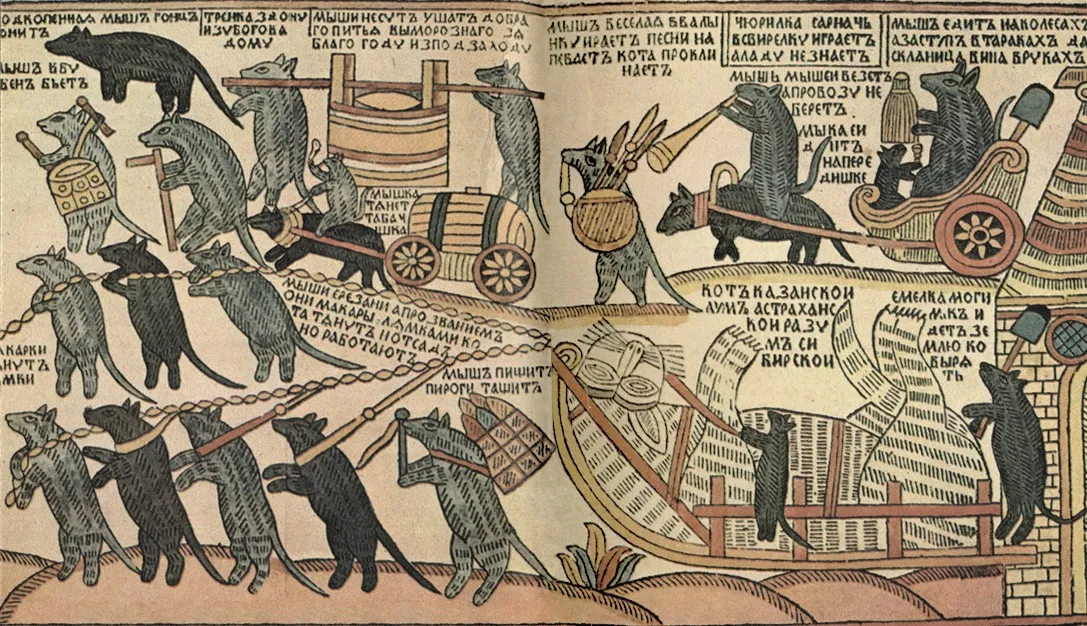 МЫШЪ ГОНЦЪ
ТРЕНКА ЗДОНУ
ИЗУБОГОВА
ДОМУ
МЫШИ НЕСУТЪ УШАТЪ ДОБРА
ГО ПИТЬЯ ВЫМОРОЗНАГО ЗА
БЛАГО ГОДУ ИЗПОДЗАХОДУ
МЫШЪ ВЕСЕЛАЯ ВВАЛЫ
НКУ ИГРАЕТЪ ПЕСНИ НА
ПЕВАЕТЪ КОТА ПРОКЛИ
НАЕТЪ
ЧЮРИЛКА САРНАЧЬ
ВСВИРЕЛКУ ИГРАЕТЪ
АЛАДУ НЕЗНАЕТЪ
МЫШЪ ЕДИТЪ НАКОЛЕСАХЪ
АЗАСТУПЪ ВТАРАКАХЪ ДА
СКЛАНИЦА ВИНА ВРУКАХЪ
МЫШЪ ВБУ
БЕНЪ БЬЕТЪ
МЫШЬ МЫШЕИ ВЕЗЕТЪ
АПРОВОЗУ НЕ
БЕРЕТЪ
НАПЕРЕ
ДИШКЕ
МЫШКА
ТЯНЕТ
ТАБАЧ
ИШКА
МЫШИ СРЕЗАНИ АПРОЗВАНИЕМЪ
ОНИ МАКАРЫ ЛЯМКАМИ КО
ТА ТЯНУТЪ ПОТСАДЪ
НО РАБОТАЮТЪ
КОТЪ КАЗАНСКОИ
АСТРАХАНС
КОИ РАЗУ
МЪ СИ
БИРСКОИ
ЕМЕЛКА МОГИ
ЛАКЪ И
ДЕТЪ ЗЕ
МЛЮ КО
ВЫРЯ
ТЬ
МЫШЪ ПИЩИТЪ
ПИРОГИ ТАЩИТЪ